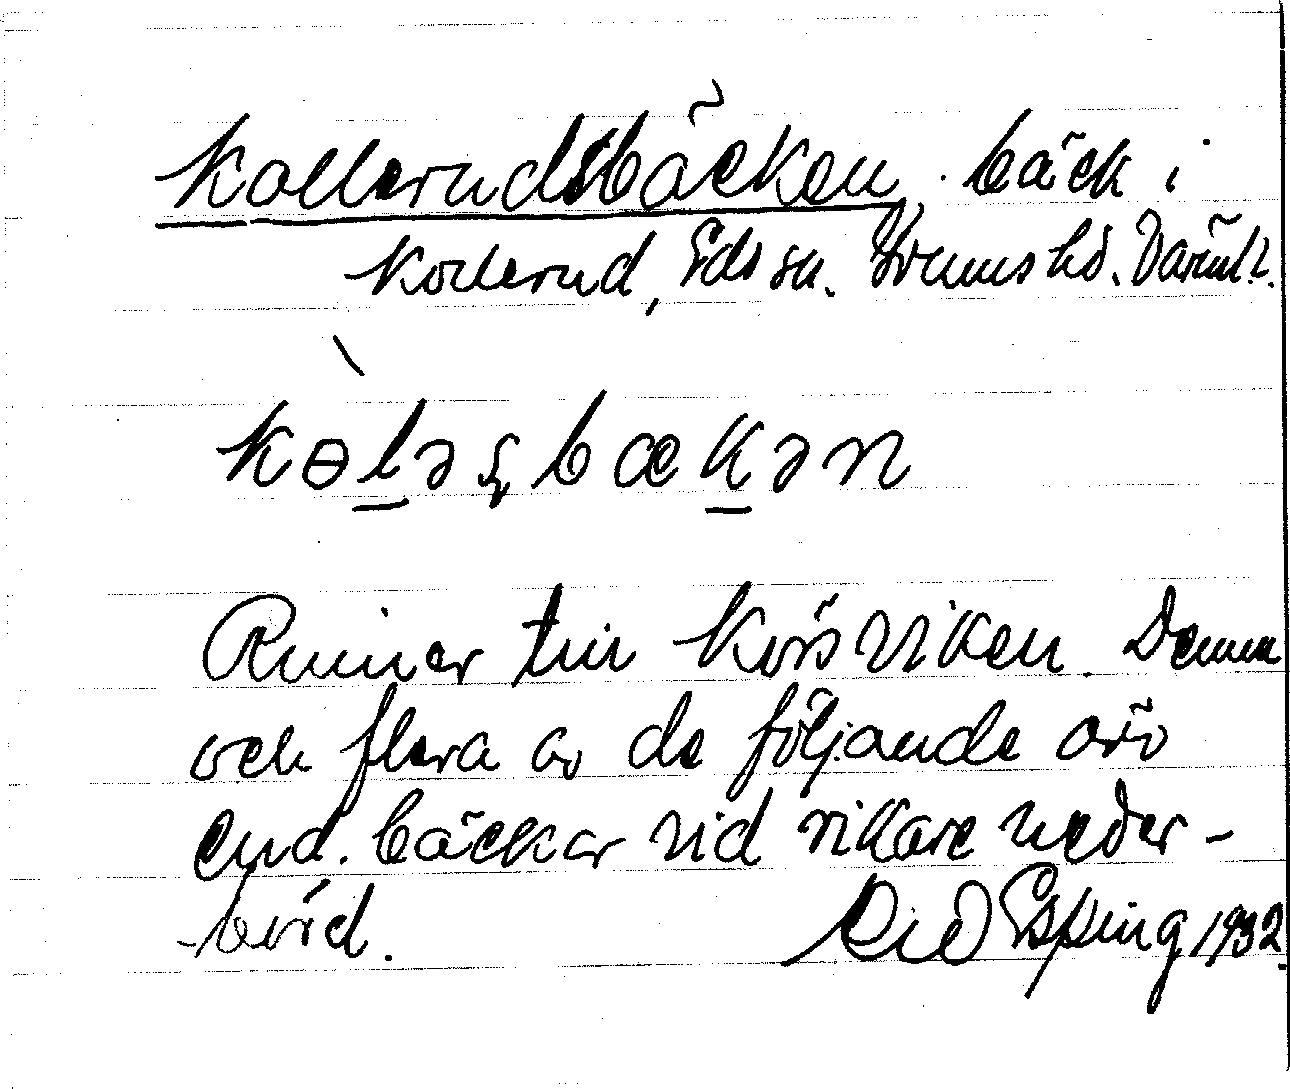 Kollerudsbäcken, bäck i
Kollerud, Eds sn. Grums hd. Värml.
kɵ̀ləʂbækən
Rinner till Körsviken. Denna
och flera av de följande äro
end. bäckar vid rikare neder-
börd. Ping 1932.